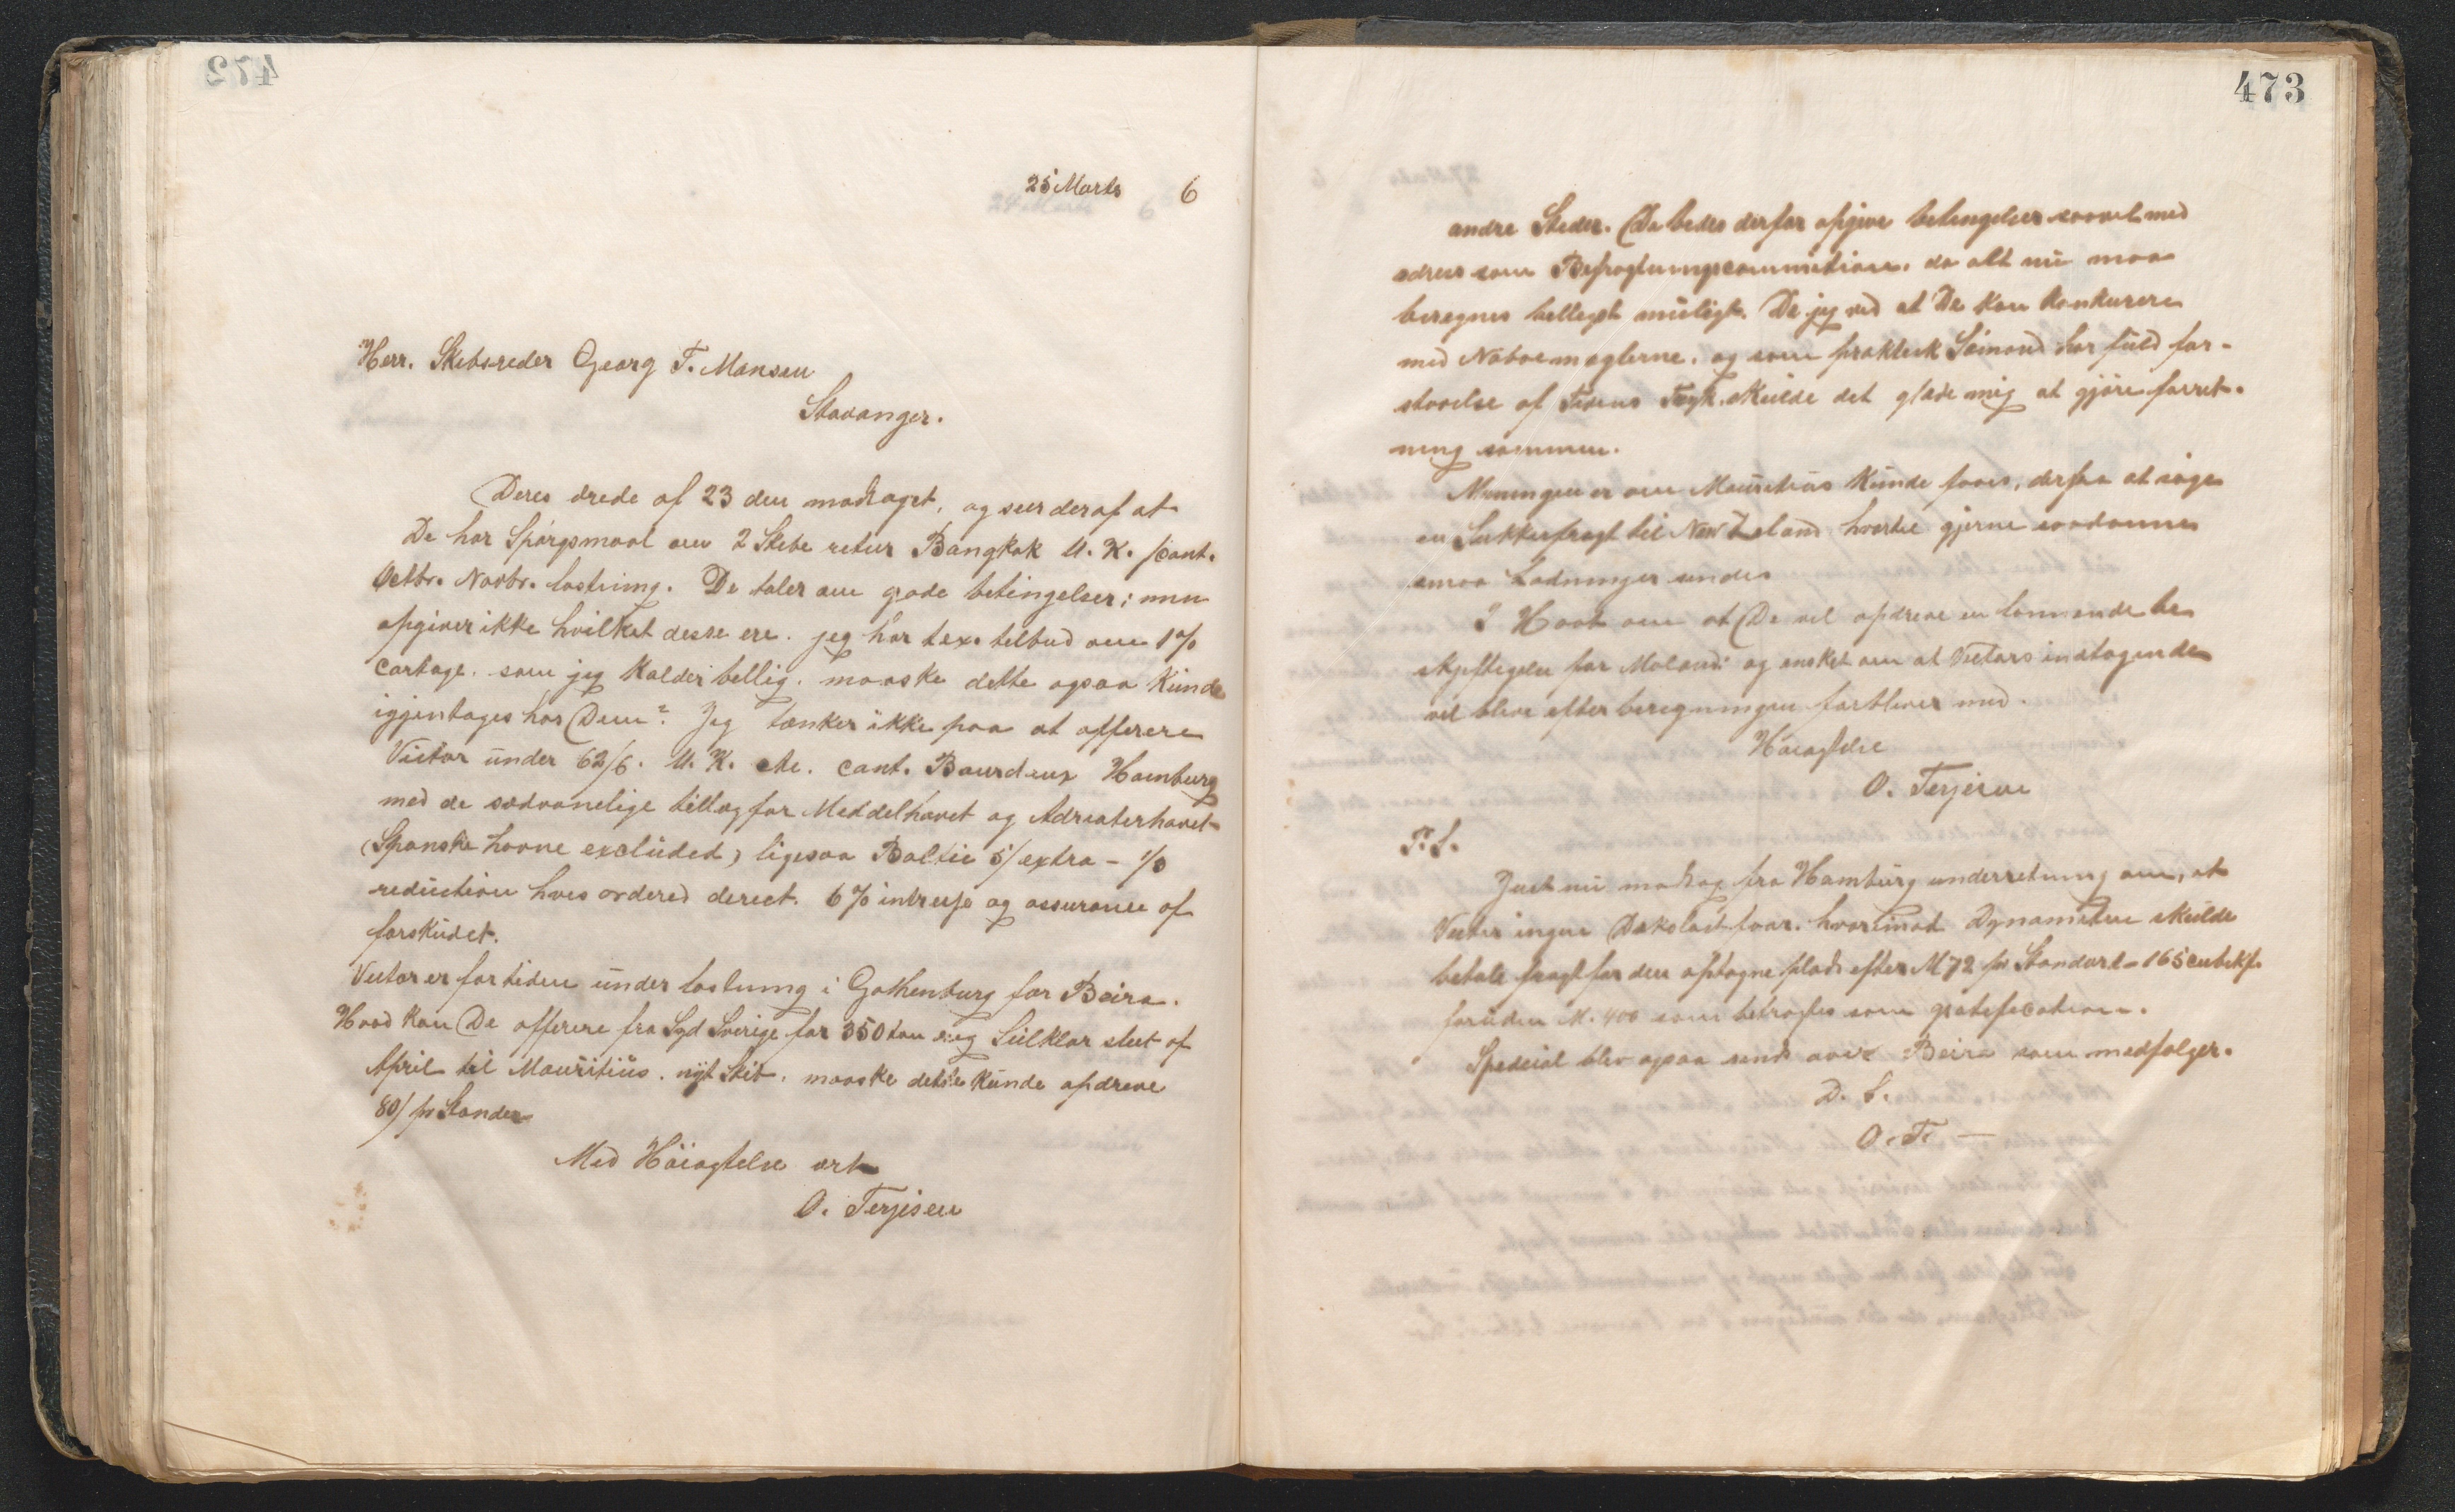 472
25 Marts 6
Herr. Skibsreder Georg F. Monsen
Stavanger.
Deres ærede af 23 den modtaget, og seer deraf at
De har Spørgsmaal om 2 Skibe retur Bangkok U. K. / Cont.
Octbr. Novbr. lastning. De taler om gode betingelser; men
opgiver ikke hvilket desse ere. jeg har tex. tilbud om 1%
cortage. som jeg Kalder billig. maaske dette ogsaa Kunde
igjentages hos Dem? Jeg tænker ikke paa at offerere
Victor under 62/6. U. K. cont. Bourdeux Hamburg
med de sædvanelige tillæg for Middelhavet og Adreaterhavet
(Spanske havne excluded) ligesaa Baltic 5/ extra - 1/3
reduction hvis ordered derect. 6% intresse og assurance of
forskudet.
Victor er for tiden under lastning i Gothenburg for Beira.
Hvad kan De offerere fra Syd Sverige for 350 ton Seilklar slut of
April til Mauritius. nyt skib. maaske dette Kunde opdreve
80/ pr Stander
Med Höiagtelse ærb
O. Terjesen
473
andre Steder. De bedes derfor opgive betingelser saavel med
adress som Befragtningscommission. da alt nu maa
beregnes billigst muligt. Da jeg ved at De kan Konkurere
med Naboemæglerne. og som praktisk Sømand har fuld for-
staaelse af Tidens Tryk. skulde det glæde mig at gjøre forret-
ning sammen.
Meningen er om Mauritius Kunde faaes, derfra at søge
en Sukkerfragt til New Zeland hvortil gjerne saadanne
smaa Ladninger sendes
I Haab om at De vil opdreve en lønnende be
skjeftigelse for Moland og ønsket om at Victors indtagende
vil blive efter beregningen forbliver med.
Høiagtelse
O. Terjesen
P. S.
Just nu modtog fra Hamburg underretning om, at
Victor ingen Dækslast faar. hvorimod Dynamiten skulde
betale fragt for den optagne plads efter M 72 pr Standart - 165 cubikf.
foruden M. 400 som betragtes som gratification.
Spedcial blev ogsaa sendt Beira som medfølger.
D. S.
O. T. —